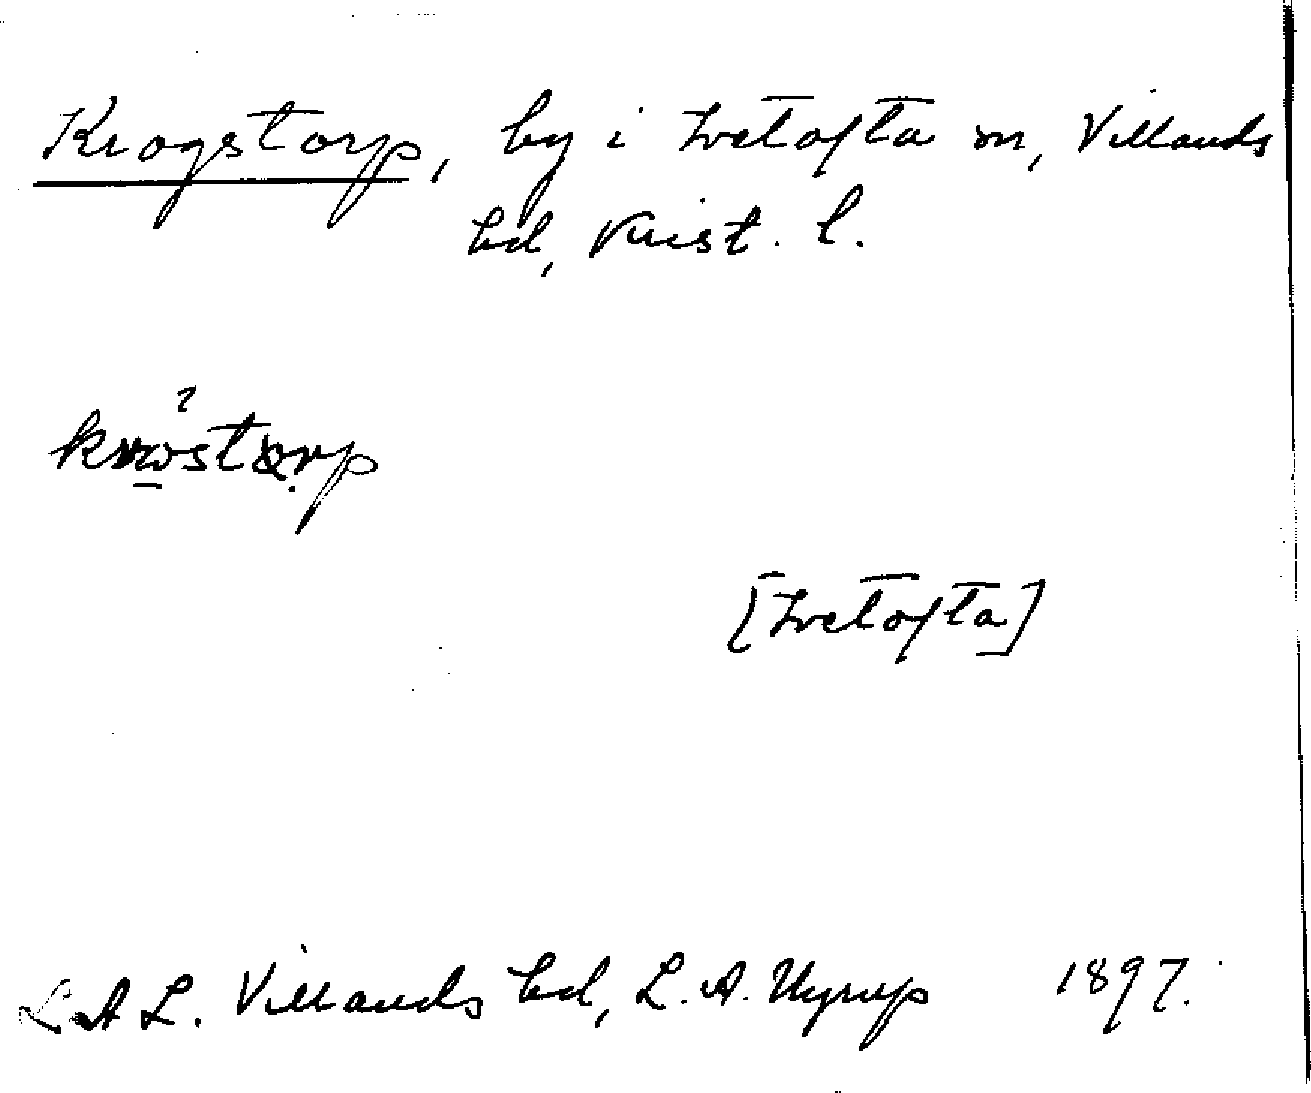 Krogstorp, by i Ivetofta sn, Villands
hd, Krist. l.
[Ivetofta]
L A L. Villands hd, L. A. Nyrup 1897.